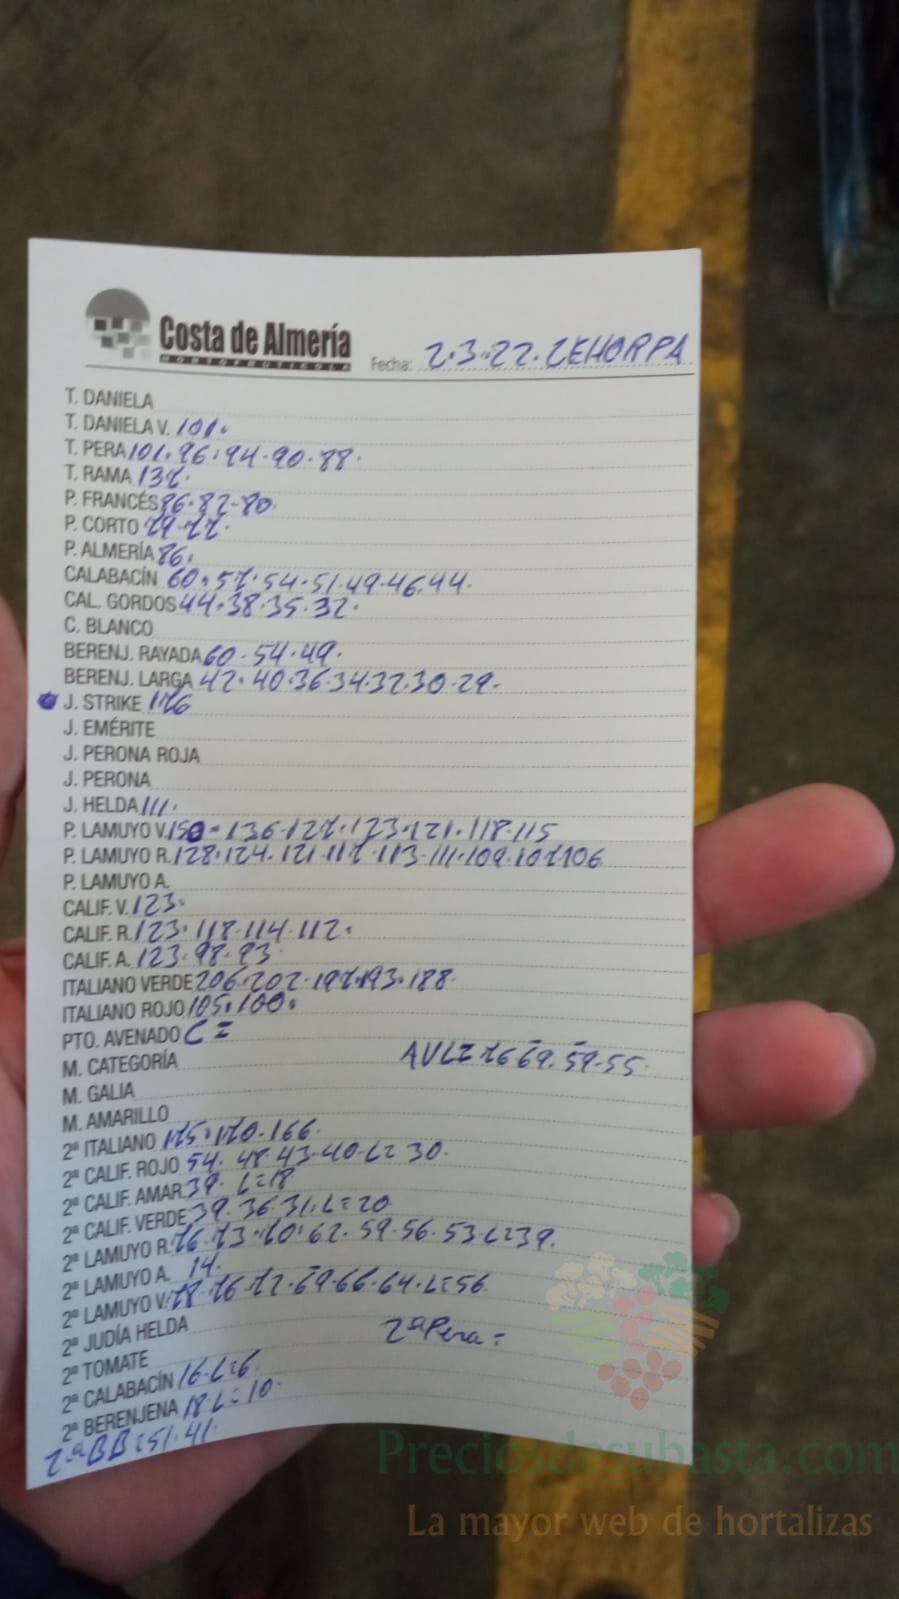 Costa de Almería
HORTOFRUTICOLA
Fecha: 2.3.22. ZEHORPA
T. DANIELA
T. DANIELA V. 101.
T. PERA 101.96.94.90.88.
T. RAMA 137.
P. FRANCÉS 86.82-80.
P. CORTO 79-77.
P. ALMERÍA 86.
CALABACÍN 60.57.54.51.49.46.44.
CAL. GORDOS 44.38.35.32.
C. BLANCO
BERENJ. RAYADA 60.54.49.
BERENJ. LARGA 42.40.36.34.32.30.29.
J. STRIKE 176
J. EMÉRITE
J. PERONA ROJA
J. PERONA
J. HELDA 111.
P. LAMUYO V. 150-136.127.123.121.118.115
P. LAMUYO R. 128.124.121.117.113.111.109.107.106
P. LAMUYO A.
CALIF. V. 123.
CALIF. R. 123.118-114-112.
CALIF. A. 123.98.93.
ITALIANO VERDE 206.202.197.193.188.
ITALIANO ROJO 105.100.
PTO. AVENADO C=
AVL= 76 69.59-55.
M. CATEGORÍA
M. GALIA
M. AMARILLO
2ª ITALIANO 175.170.166.
2ª CALIF. ROJO 54.48.43-40-L=30.
2ª CALIF. AMAR. 39. L=18
2ª CALIF. VERDE 39.36.31.L=20
2ª LAMUYO R. 76.73.70.62.59.56.53.L=39.
2ª LAMUYO A. 14.
2ª LAMUYO V. 78.76.72.69.66.64.L=56
2ª JUDÍA HELDA
2ªPera=
2ª TOMATE
2ª CALABACÍN 16.L=6.
2ª BERENJENA 18 L=10.
2ªBB=51.41.
Preciosdesubasta.com
La mayor web de hortalizas